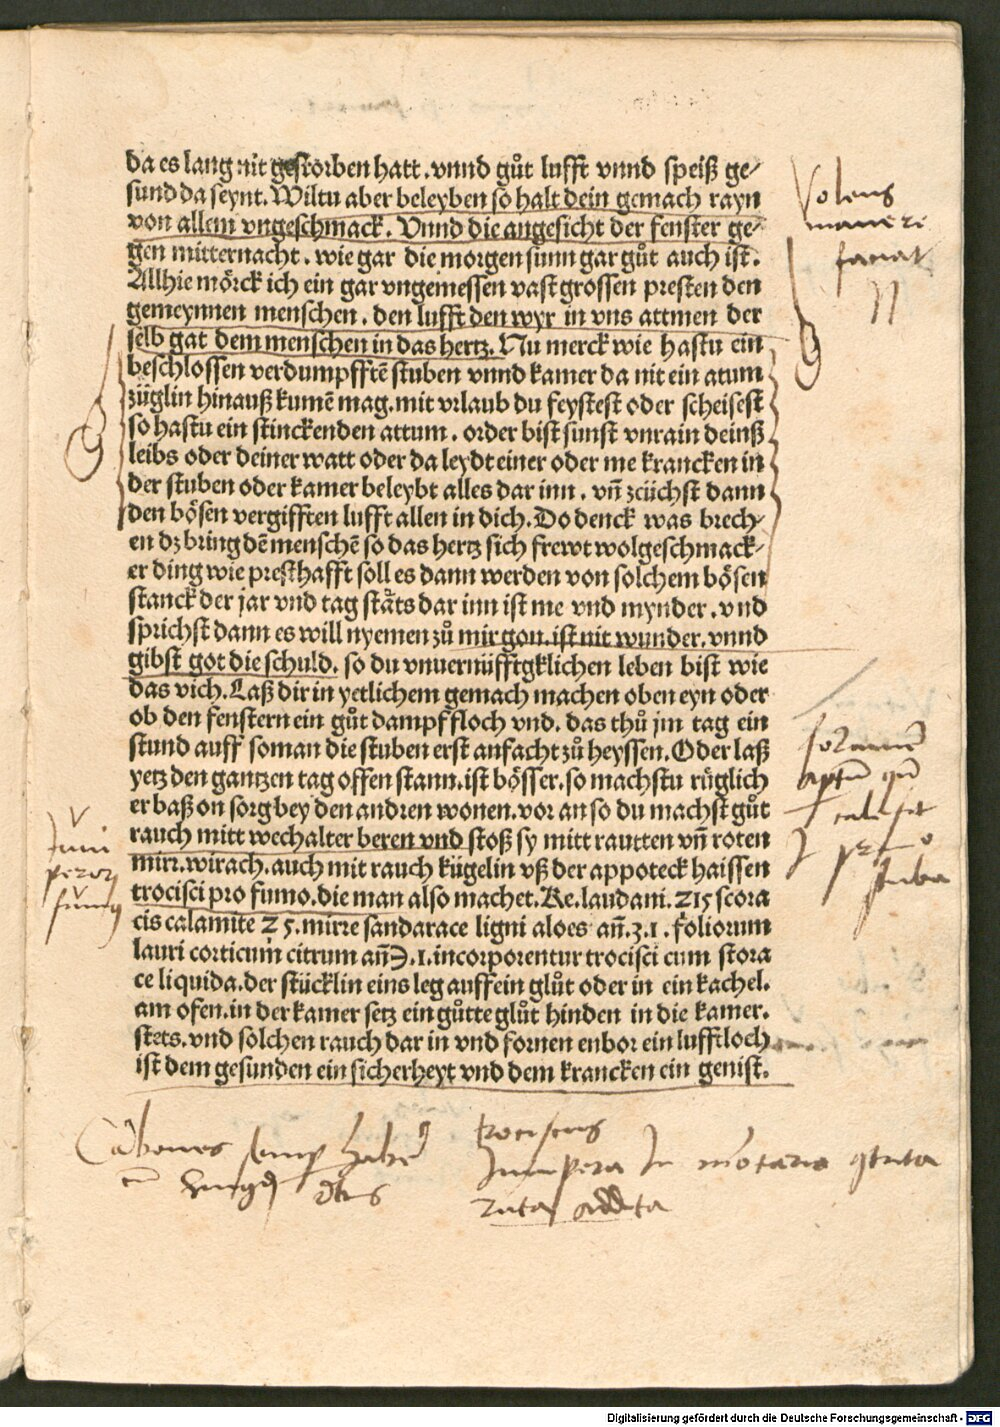 da es lang nit gestorben hatt. vnnd gůt lufft vnnd speiß ge⸗
sund da seynt. Wiltu aber beleyben so halt dein gemach rayn
von allem vngeschmack. Vnnd die angesicht der fenster ge⸗
gen mitternacht. wie gar die morgen sunn gar gůt auch ist.
Allhie mörck ich ein gar vngemessen vast grossen presten den
gemeynnen menschen. den lufft den wyr in vns attmen der
selb gat dem menschen in das hertz. Nu merck wie hastu ein
beschlossen verdumpfftē stuben vnnd kamer da nit ein atum
züglin hinauß kumē mag. mit vrlaub du feystest oder scheisest
so hastu ein stinckenden attum. order bist sunst vnrain deinß
leibs oder deiner watt oder da leydt einer oder me krancken in
der stuben oder kamer beleybt alles dar inn. vñ zeüchst dann
den bösen vergifften lufft allen in dich. Do denck was brech⸗
en dz bring dē menschē so das hertz sich frewt wolgeschmack⸗
er ding wie presthafft soll es dann werden von solchem bösen
stanck der jar vnd tag stäts dar inn ist me vnd mynder. vnd
sprichst dann es will nyemen zů mir gon. ist nit wunder. vnnd
gibst got die schuld. so du vnuernüfftgklichen leben bist wie
das vich. Laß dir in yetlichem gemach machen oben eyn oder
ob den fenstern ein gůt dampffloch vnd. das thů jm tag ein
stund auff so man die stuben erst anfacht zů heyssen. Oder laß
yetz den gantzen tag offen stann. ist bösser. so machstu rüglich
er baß on sorg bey den andren wonen. vor an so du machst gůt
rauch mitt wechalter beren vnd stoß sy mitt rautten vñ roten
mirr. wirach. auch mit rauch kügelin vß der appoteck haissen
trocisci pro fumo. die man also machet. Re. laudani. Z15 scora
cis calamite Z 5. mirre sandarace ligni aloes añ. 3. 1. foliorum
lauri corticum citrum añ Э. 1. incorporentur trocisci cum stora
ce liquida. der stücklin eins leg auff ein glůt oder in ein kachel.
am ofen. in der kamer setz ein gůtte glůt hinden in die kamer.
stets. vnd solchen rauch dar in vnd fornen enbor ein lufftloch
ist dem gesunden ein sicherheyt vnd dem krancken ein genist.
Volens
manere
faciat
trociscus
ruta addita
Digitalisierung gefördert durch die Deutsche Forschungsgemeinschaft - DFG